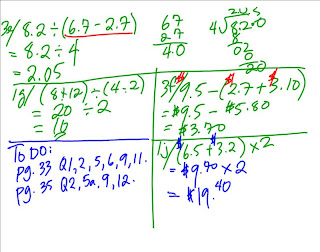 3e/ 8.2 ÷ (6.7 - 2.7)
= 8.2 ÷ 4
= 2.05
6.7
2.7
4.0
2.05
4 8.20
8
02
0
20
1g/ (8+12) ÷ (4-2)
= 20 ÷ 2
= 10
3f/ $9.5 - ($2.7 + $3.10)
= $9.5 - $5.80
= $3.70
TO DO:
pg. 33 Q1, 2, 5, 6, 9, 11.
pg. 35 Q2, 5a, 9, 12.
1j/ ($6.5 + $3.2) × 2
= $9.70 × 2
= $19.40